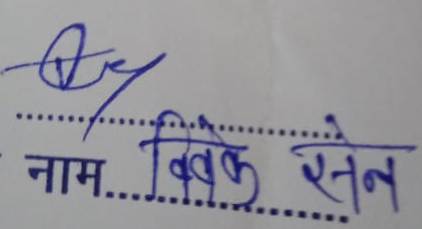 नाम विवेक सेन